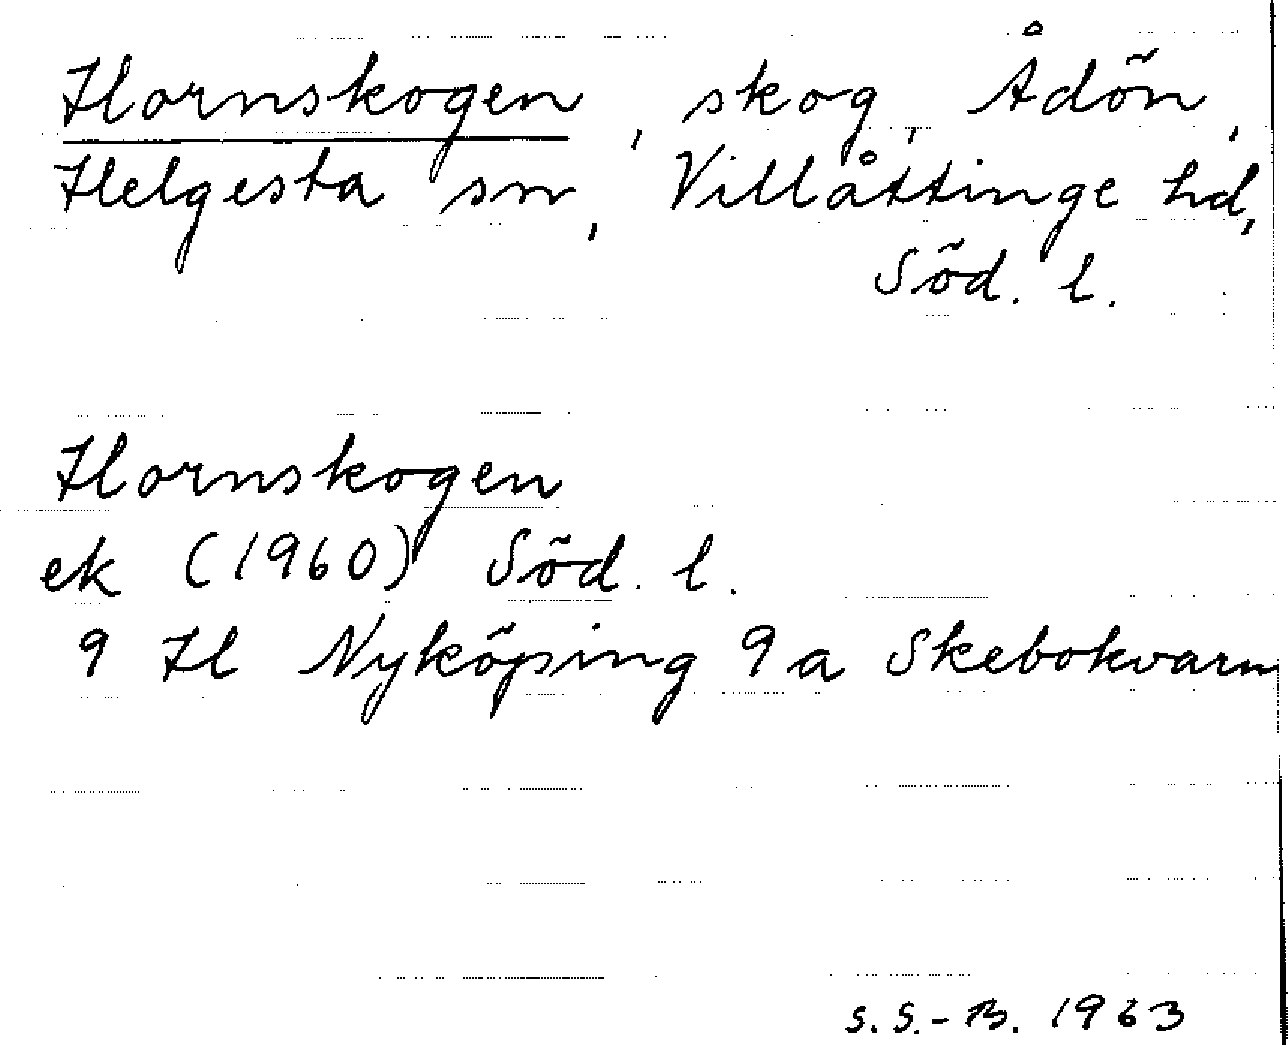 Hornskogen, skog, Ådön,
Helgesta sn, Villåttinge hd,
Söd. l.
Hornskogen
ek (1960) Söd. l.
9 H Nyköping 9 a Skebokvarn
S. S.-B. 1963